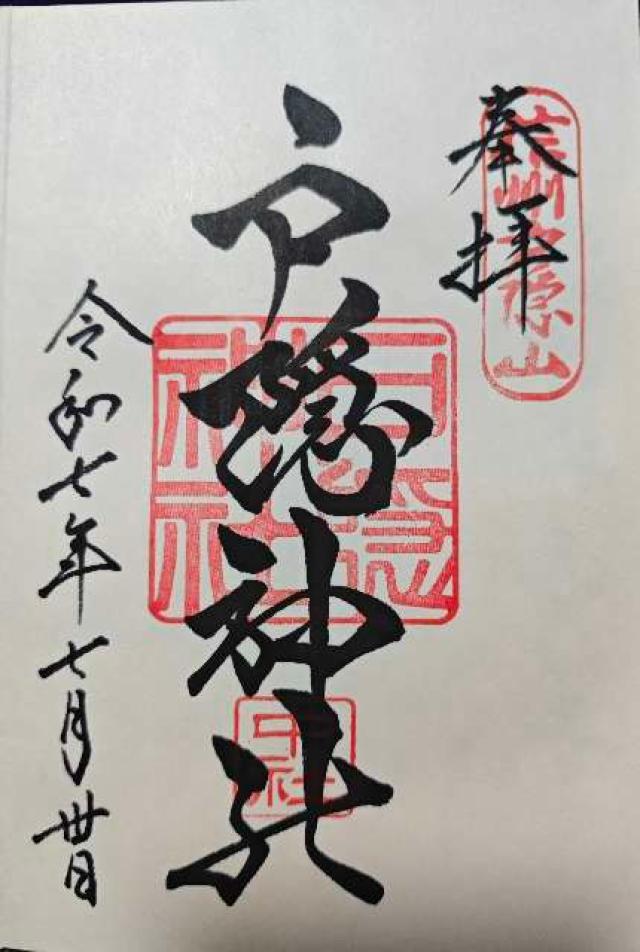 奉拝
信州戸隠山
戸隠神社
戸隠
神社
中社
令和七年七月卅日